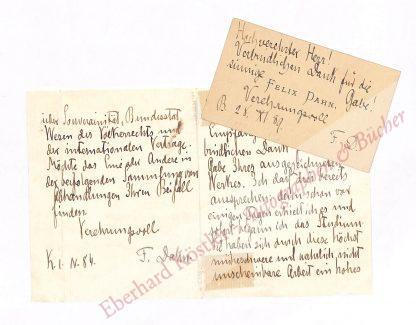 Hochverehrter Herr!
Verbindlichen Dank für die
sinnige Gabe!
FELIX DAHN.
Verehrungsvoll
B. 28. XI. 89.
F. D
über Souverainität, Bundesstaat
Wesen des Völkerrechts und
der internationalen Verträge.
Möchte das Eine oder Andere in
der beifolgenden Sammlung von
Abhandlungen Ihren Beifall
finden.
Verehrungsvoll
F. Dahn
K. 1. IV. 84.
Empfang
bindlichen Dank
Gabe Ihres ausgezeichneten
Werkes. Ich darf das bereits
aussprechen, denn schon vor
einigen Tagen erhielt ich es und
begann ich das Studium.
Sie haben sich durch diese höchst
mühevolle und natürlich nicht
unscheinbare Arbeit ein hohes
Eberhard Köstler Autographen & Bücher